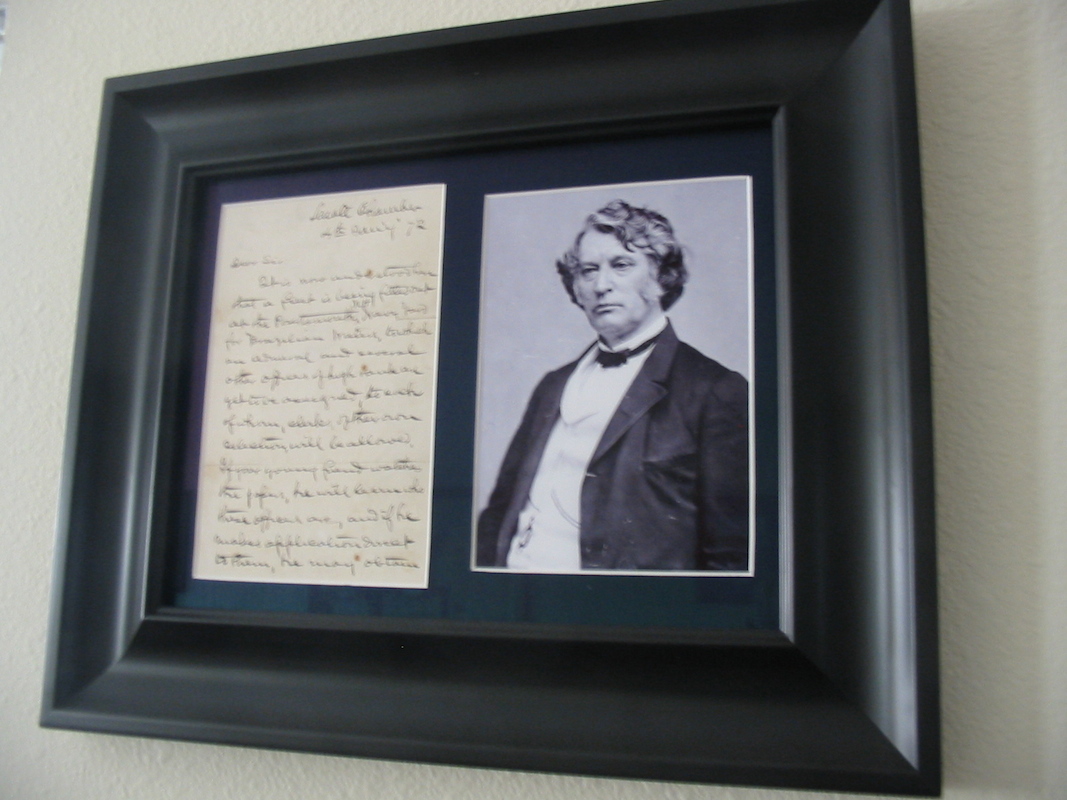 Senate Chamber
4th Jan'y 72
Dear Sir.
It is now understood here
that a fleet is being fitted out
at the Portsmouth Navy Yard
for Brazilian Waters, to which
an admiral and several
other officers of high rank are
yet to be assigned, to each
of whom, clerks, of their own
selection, will be allowed.
If your young friend watches
the papers, he will learn who
these officers are, and if he
makes application direct
to them, he may obtain